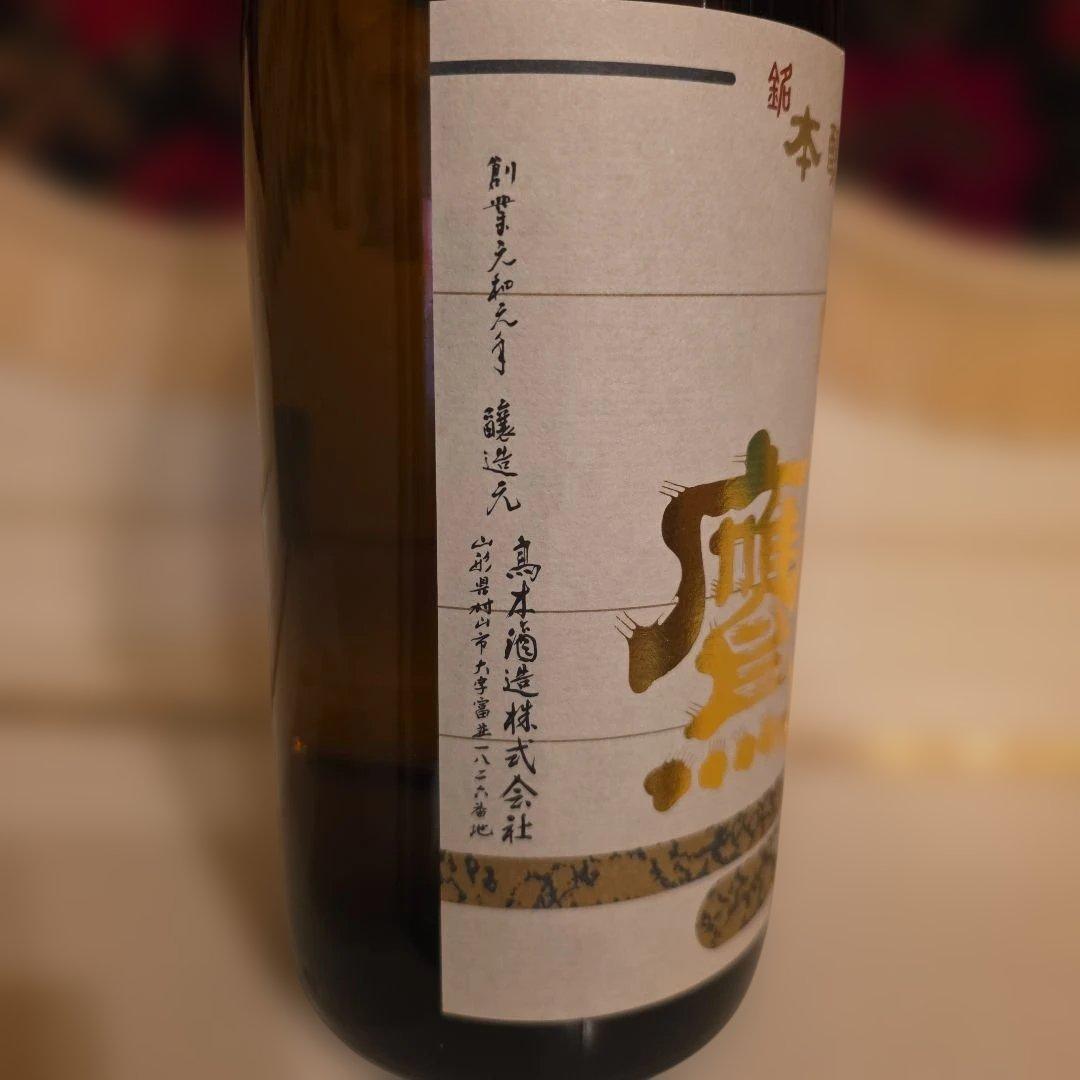 銘
本醸
鷹
創業元和元年 醸造元
高木酒造株式会社
山形県村山市大字富並一八二六番地